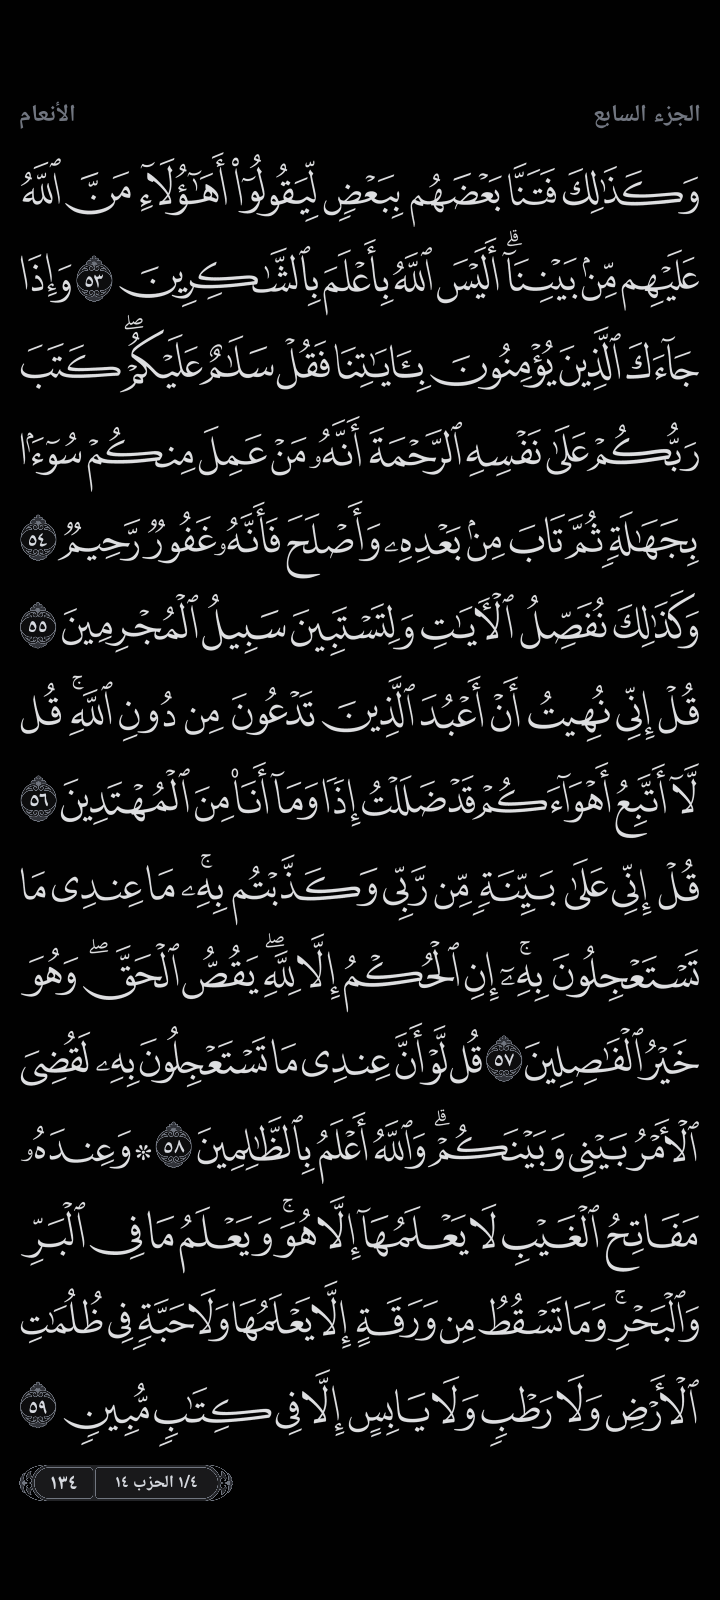 الجزء السابع
الأنعام
وَكَذَٰلِكَ فَتَنَّا بَعۡضَهُم بِبَعۡضٖ لِّيَقُولُوٓاْ أَهَٰٓؤُلَآءِ مَنَّ ٱللَّهُ
عَلَيۡهِم مِّنۢ بَيۡنِنَآۗ أَلَيۡسَ ٱللَّهُ بِأَعۡلَمَ بِٱلشَّٰكِرِينَ ٥٣ وَإِذَا
جَآءَكَ ٱلَّذِينَ يُؤۡمِنُونَ بِـَٔايَٰتِنَا فَقُلۡ سَلَٰمٌ عَلَيۡكُمۡۖ كَتَبَ
رَبُّكُمۡ عَلَىٰ نَفۡسِهِ ٱلرَّحۡمَةَ أَنَّهُۥ مَنۡ عَمِلَ مِنكُمۡ سُوٓءَۢا
بِجَهَٰلَةٖ ثُمَّ تَابَ مِنۢ بَعۡدِهِۦ وَأَصۡلَحَ فَأَنَّهُۥ غَفُورٞ رَّحِيمٞ ٥٤
وَكَذَٰلِكَ نُفَصِّلُ ٱلۡأٓيَٰتِ وَلِتَسۡتَبِينَ سَبِيلُ ٱلۡمُجۡرِمِينَ ٥٥
قُلۡ إِنِّي نُهِيتُ أَنۡ أَعۡبُدَ ٱلَّذِينَ تَدۡعُونَ مِن دُونِ ٱللَّهِۚ قُل
لَّآ أَتَّبِعُ أَهۡوَآءَكُمۡ قَدۡ ضَلَلۡتُ إِذٗا وَمَآ أَنَا۠ مِنَ ٱلۡمُهۡتَدِينَ ٥٦
قُلۡ إِنِّي عَلَىٰ بَيِّنَةٖ مِّن رَّبِّي وَكَذَّبۡتُم بِهِۦۚ مَا عِندِي مَا
تَسۡتَعۡجِلُونَ بِهِۦٓۚ إِنِ ٱلۡحُكۡمُ إِلَّا لِلَّهِۖ يَقُصُّ ٱلۡحَقَّۖ وَهُوَ
خَيۡرُ ٱلۡفَٰصِلِينَ ٥٧ قُل لَّوۡ أَنَّ عِندِي مَا تَسۡتَعۡجِلُونَ بِهِۦ لَقُضِيَ
ٱلۡأَمۡرُ بَيۡنِي وَبَيۡنَكُمۡۗ وَٱللَّهُ أَعۡلَمُ بِٱلظَّٰلِمِينَ ٥٨ * وَعِندَهُۥ
مَفَاتِحُ ٱلۡغَيۡبِ لَا يَعۡلَمُهَآ إِلَّا هُوَۚ وَيَعۡلَمُ مَا فِي ٱلۡبَرِّ
وَٱلۡبَحۡرِۚ وَمَا تَسۡقُطُ مِن وَرَقَةٍ إِلَّا يَعۡلَمُهَا وَلَا حَبَّةٖ فِي ظُلُمَٰتِ
ٱلۡأَرۡضِ وَلَا رَطۡبٖ وَلَا يَابِسٍ إِلَّا فِي كِتَٰبٖ مُّبِينٖ ٥٩
١/٤ الحزب ١٤
١٣٤